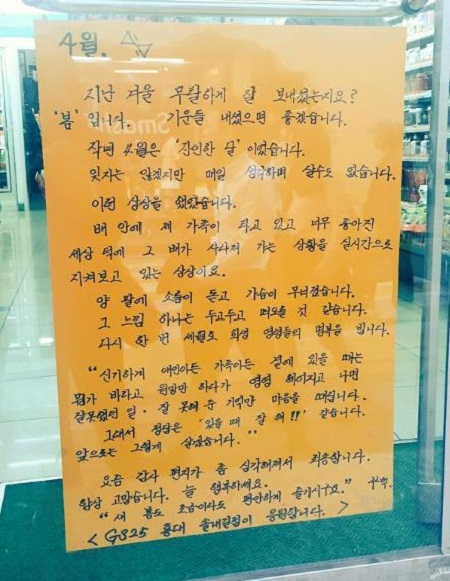 4월.
지난 겨울 무탈하게 잘 보내셨는지요?
'봄' 입니다. 기운들 내셨으면 좋겠습니다.
작년 4월은 '잔인한 달' 이었습니다.
잊지는 않겠지만 매일 생각하며 살수도 없습니다.
이런 상상을 했었습니다.
배 안에 제 가족이 타고 있고 너무 좋아진
세상 덕에 그 배가 사라져 가는 상황을 실시간으로
지켜보고 있는 상상이요.
양 팔에 소름이 돋고 가슴이 무너졌습니다.
그 느낌 하나는 두고두고 떠오를 것 같습니다.
다시 한 번 세월호 희생 영령들의 명복을 빕니다.
"신기하게 애인이든 가족이든 곁에 있을 때는
뭔가 바라고 원망만 하다가 영영 헤어지고 나면
잘못했던 일·잘 못해 준 기억만 마음을 때립니다.
그래서 정답은 '있을 때 잘 해!!' 같습니다.
앞으로는 그렇게 살겠습니다."
요즘 감사 편지가 좀 심각해져서 죄송합니다.
항상 고맙습니다. 늘 행복하세요.
"새 봄도 조금이라도 편안하게 즐기시구요."
<GS25 홍대 솔내길점이 응원합니다.>